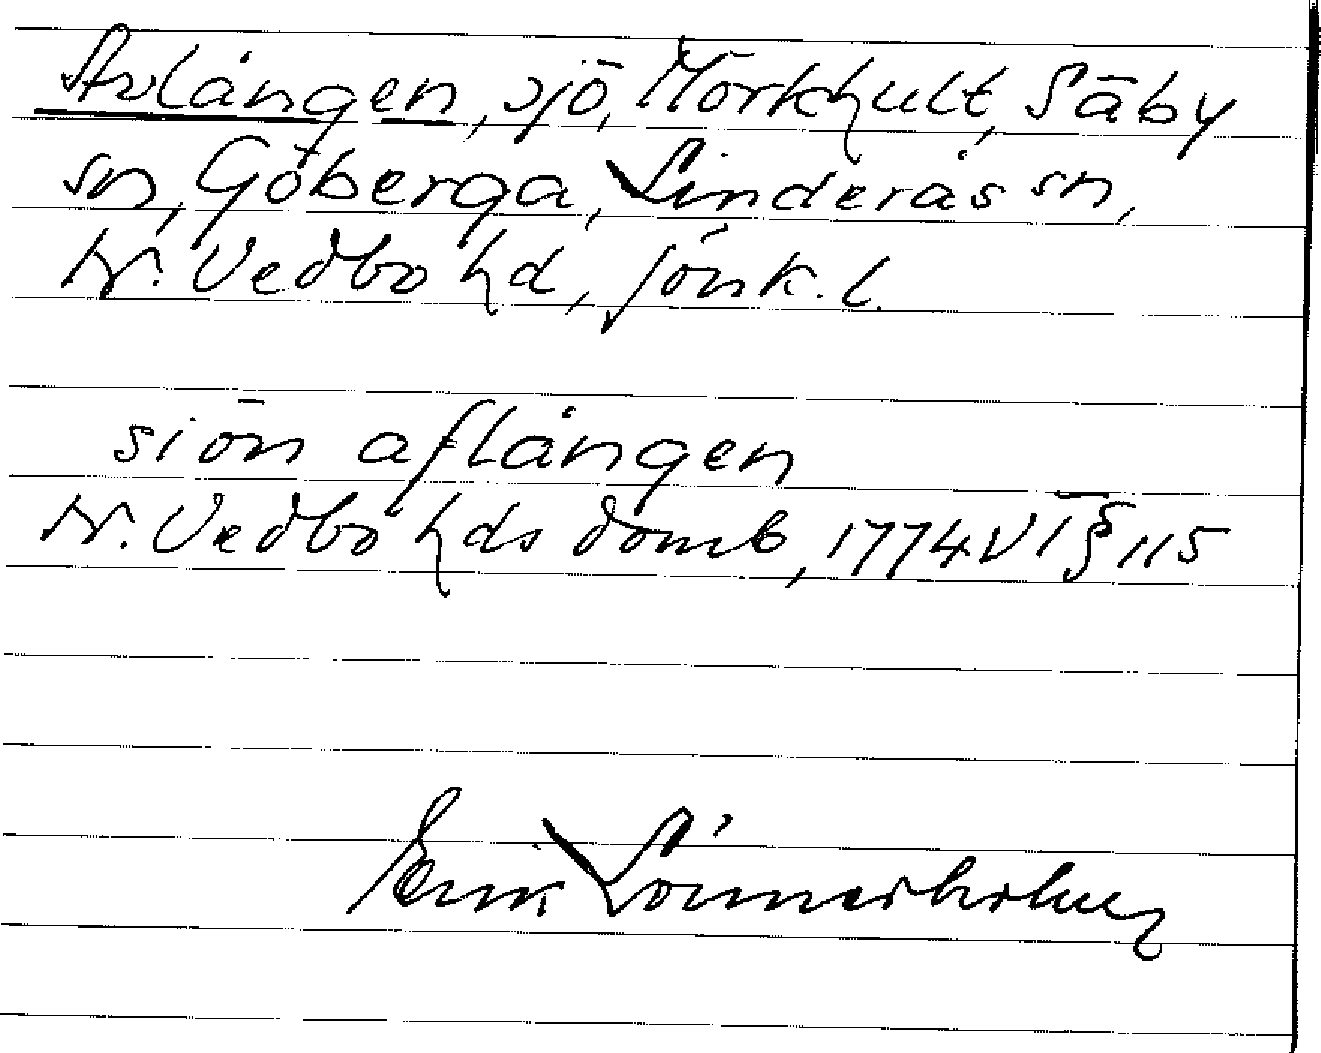 Avlången, sjö, Mörkhult, Säby
sn, Göberga, Linderås sn,
N. Vedbo hd, Jönk. l.
siön aflången
N. Vedbo hds domb, 1774 VT § 115
Erik Lönnerholm